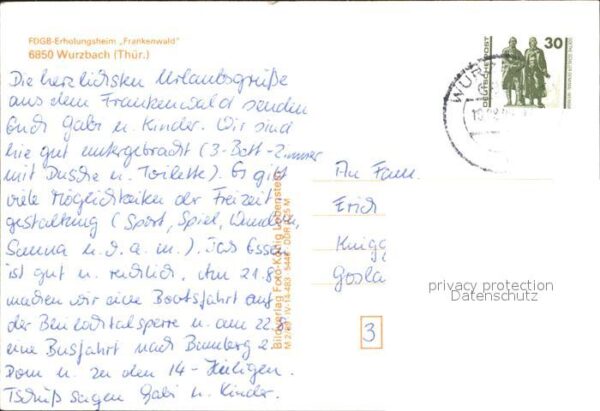 FDGB-Erholungsheim „Frankenwald"
6850 Wurzbach (Thür.)
Die herzlichsten Urlaubsgrüße
aus dem Frankenwald senden
Euch Gabi u. Kinder. Wir sind
hie gut untergebracht (3-Bett-Zimmer
mit Dusche u. Toilette). Es gibt
viele Möglichkeiten der Freizeit
gestaltung (Sport, Spiel, Wandern,
Sauna u. d. a. m.). Das Essen
ist gut u. reichlich. Am 21.8.
machen wir eine Bootsfahrt auf
der Bleilochtalsperre u. am 22.8.
eine Busfahrt nach Bamberg z.
Dom u. zu den 14-Heiligen.
Tschüß sagen Gabi u. Kinder.
Bildverlag Foto-König Lobenstein
DEUTSCHE POST
30
WUR
An Fam.
Erich
Goslar
3
privacy protection
Datenschutz